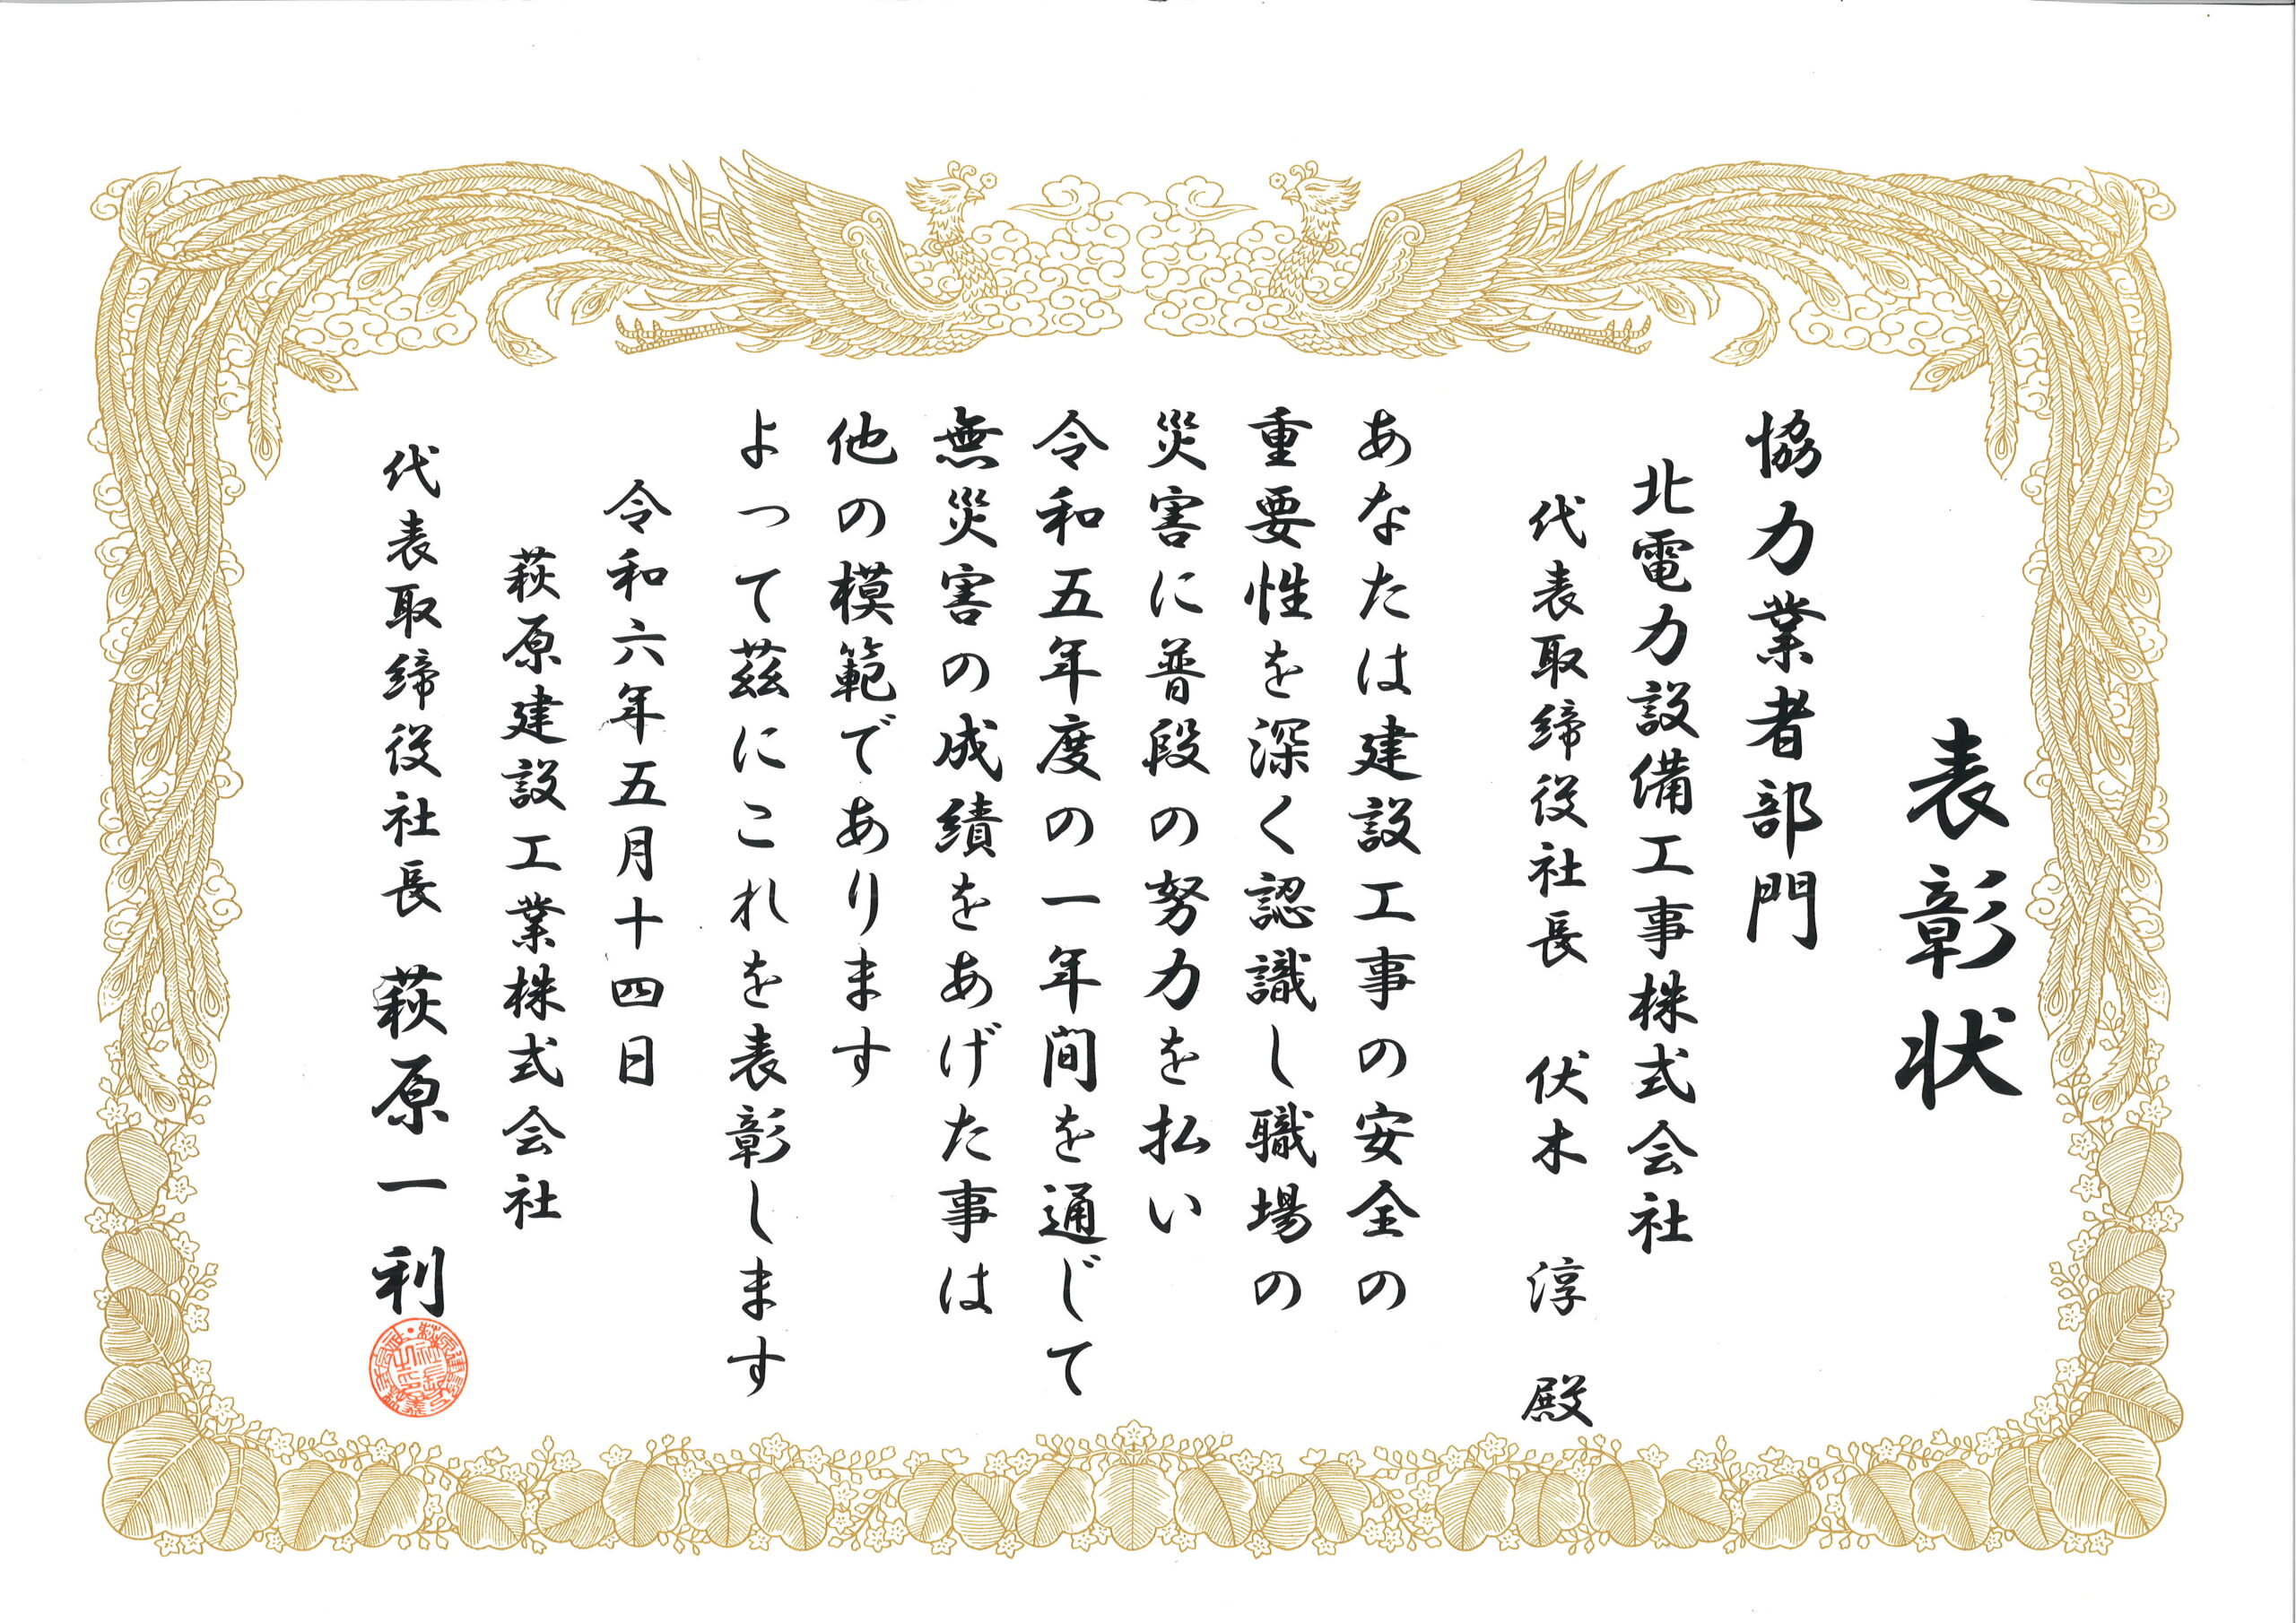 表彰状
協力業者部門
北電力設備工事株式会社
代表取締役社長 伏木 淳 殿
あなたは建設工事の安全の
重要性を深く認識し職場の
災害に普段の努力を払い
令和五年度の一年間を通じて
無災害の成績をあげた事は
他の模範であります
よって茲にこれを表彰します
令和六年五月十四日
萩原建設工業株式会社
代表取締役社長 萩原一利